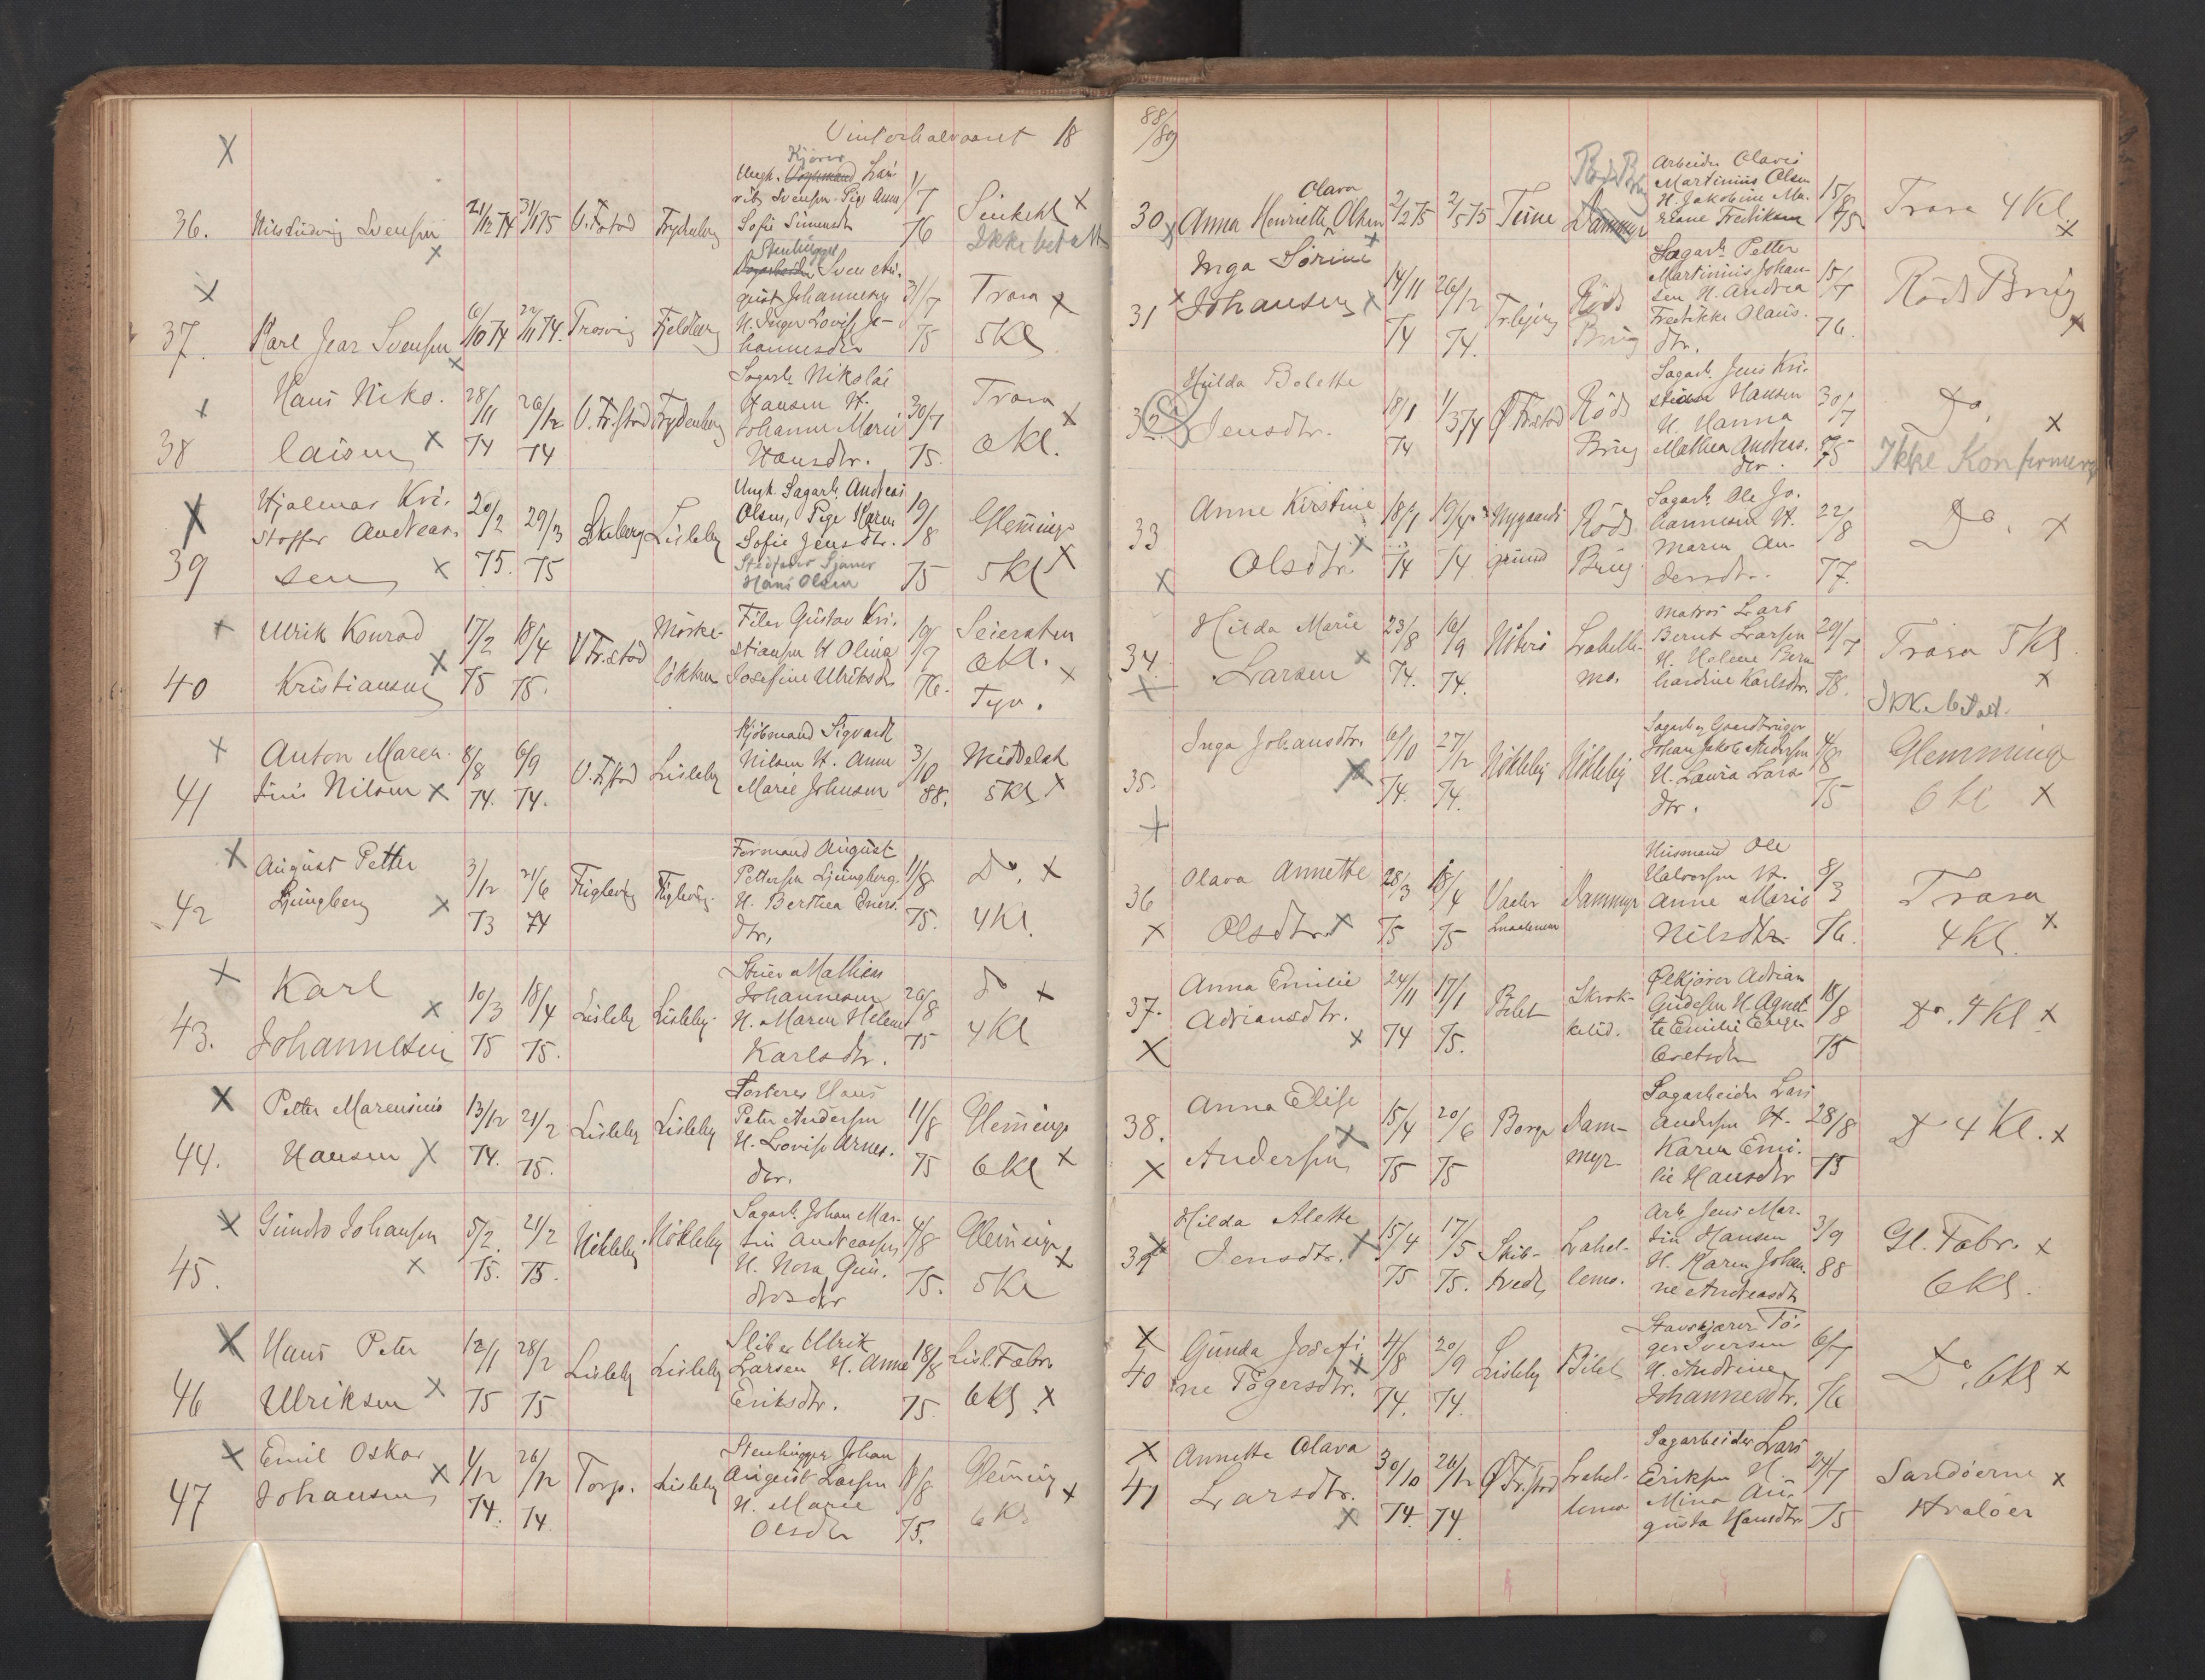 Vinterhalvaaret 18
36. Nils Ludvig Svensen 21/12 74 31/1 75 V. Fr.stad Frydenberg
Kjører
Ungk. Lau
ritz Svensen Pige Anna
Sofie Simensdtr
1/7 76
Ikke betalt
37. Karl Svensen 6/10 74 22/11 74. Trosvig Fjeldberg
Stenhugger
Sven Au-
gust Johannesen
H. Inger Lovise Jo-
hannesdtr
31/7 75
Trara
5 Kl
38 Hans Niko-
laisen
28/11 74 26/12 74 V. Fr.stad Frydenberg
Sagarb. Nikolai
Hansen H.
Johanne Marie
Hansdtr.
30/7 75.
Trara
39 Hjalmar Kri-
stoffer Andreas-
sen
20/2 75. 29/3 75 Lisleby
Ungk. Sagarb. Andreas
Olsen, Pige Karen
Sofie Jensdtr.
Stedfader Sjauer
Hans Olsen
19/8 75
Glemminge
5 Kl
40 Ulrik Konrad
Kristiansen
17/2 75 18/4 75. V Fr.stad Mørke-
løkken
Filer Gustav Kri-
stiansen H Olina
Josefine Ulriksdtr
19/7 76.
41 Anton Maren-
tius Nilsen
8/8 74. 6/9 74. V. Fr.stad Lisleby
Kjøbmand Sigvard
Nilsen H. Anne
Marie Johnsen
3/10 88.
Middelsk
5 Kl
42 August Petter
Ljungberg
3/12 73 21/6 74
Formand August
Pettersen Ljungberg.
H. Berthea Eners-
dtr.
11/8 75.
Do.
4 Kl.
43. Karl
Johannesen
10/3 75 18/4 75. Lisleby Lisleby.
Mathias
Johannesen
H. Maren Helene
Karlsdtr.
26/8 75
Do
4 Kl
44. Petter Marensius
Hansen
13/12 74. 21/2 75. Lisleby Lisleby
Hans
Peter Andersen
H. Lovise Arnes-
dtr.
11/8 75
Glemminge
6 Kl
45. Gundro Johansen 5/2 75. 21/2 75. Nøkleby Nøkleby
Sagarb. Johan Mar-
tin Andreassen
H. Nora Gun-
drosdtr
4/8 75.
Glemminge
5 Kl
46 Hans Peter
Ulriksen
12/1 75 28/2 75 Lisleby Lisleby
Sliber Ulrik
Larsen H. Anne
Eriksdtr.
18/8 75.
Lisl. Fabr.
6 Kl.
47 Emil Oskar
Johansen
1/12 74. 26/12 74 Torp. Lisleby
Stenhugger Johan
August Larsen
H. Marie
Olsdtr
18/8 75.
Glemming
6 Kl.
88/89
30 Anna Henriette Olava Olsen 2/2 75 2/5 75 Tune Dammyr
Røds Brug
Arbeider Olaves
Martinius Olsen
H. Jakobine Ma-
riane Fredriksen
15/8 75
Trara 4 Kl.
31 Inga Sørine
Johansen
14/11 74 26/12 74. Røds
Brug
Sagarb. Petter
Martinius Johan-
sen H. Andrea
Fredrikke Olaus-
dtr.
15/7 76.
Røds Brug
32 Hulda Bolette
Jensdtr.
18/1 74 1/3 74 Ø Fr.stad Røds
Brug
Sagarb. Jens Kri-
stian Hansen
H. Hanna
Mathea Andreas-
dtr.
30/7 75
Do.
Ikke Konfirmeres
33 Anne Kirstine
Olsdtr.
18/1 74 19/4 74 Nygaards
grund
Røds
Brug.
Sagarb. Ole Jo-
hannesen H.
Maren An-
dersdtr.
22/8 77.
Do.
34. Hilda Marie
Larsen
23/8 74. 16/9 74. Lahelle-
mo.
Matros Lars
Bernt Larsen
H. Helene Bern
hardine Karlsdtr.
29/7 78.
Trara 5 Kl.
Ikke betalt.
35. Inga Johansdtr. 6/10 74. 27/12 74. Nøkleby Nøkleby
Sagarb og Gaardbruger
Johan Jakob Andersen
H. Laura Lars-
dtr.
4/8 75
Glemminge
6 Kl
36 Olava Annette
Olsdtr.
28/3 75 18/4 75 Vaaler
Dammyr
Husmand Ole
Halvorsen H.
Anne Marie
Nilsdtr.
8/3 76.
Trara
4 Kl.
37. Anna Emilie
Adriansdtr.
24/11 74 17/1 75. Bilet
Ølkjører Adrian
Gudesen H. Agnet-
te Emilie Enge-
bretsdtr
18/8 75
Do. 4 Kl
38. Anna Elise
Andersen
15/4 75 20/6 75 Borge Dam-
myr.
Sagarbeider Lars
Andersen H.
Karen Emi-
lie Hansdtr
28/8 75
Do 4 Kl.
39 Hilda Alette
Jensdtr.
15/4 75 17/5 75. Skib-
tvedt
Lahel-
lemo.
Arb. Jens Mar-
tin Hansen
H. Karen Johan-
ne Andreasdtr
3/9 88
Gl. Fabr.
6 Kl.
40 Gunda Josefi-
ne Tögersdtr.
4/8 74. 20/9 74. Lisleby Bilet
Tö-
ger Iversen
H. Andrine
Johannesdtr.
6/7 76
Do. 6 Kl
41 Annette Olava
Larsdtr.
30/10 74. 26/12 74. Ø Fr.stad Lahel-
lemo
Sagarbeider Lars
Eriksen H.
Mina Au-
gusta Hansdtr
24/7 75
Sandøerne
Hvaløer